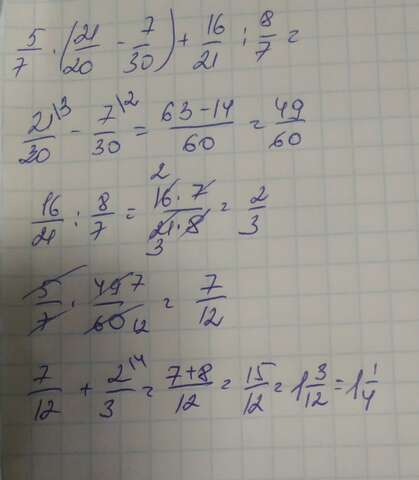 5/7 · (21/20 - 7/30) + 16/21 : 8/7 =
21\3/20 - 7\2/30 = 63-14/60 = 49/60
16/21 : 8/7 = 16·7/21·8 2 3 = 2/3
5/7 · 49/60 7 12 = 7/12
7/12 + 2\4/3 = 7+8/12 = 15/12 = 1 3/12 = 1 1/4